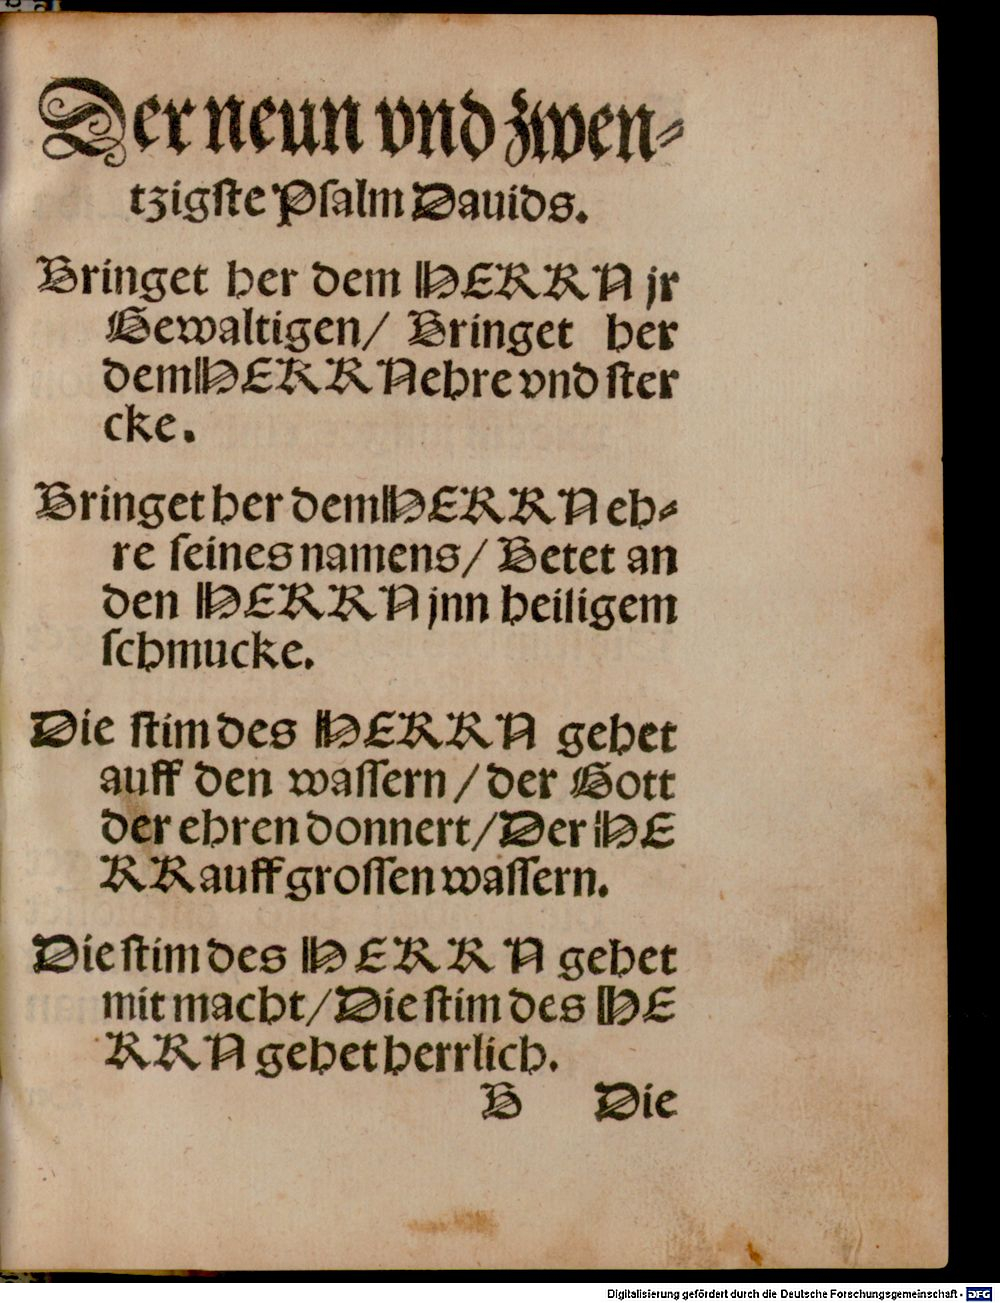 Der neun vnd zwen⸗
tzigſte Pſalm Dauids.
Bringet her dem HERRN jr
Gewaltigen/ Bringet her
dem HERRN ehre vnd ſter
cke.
Bringet her dem HERRN eh⸗
re ſeines namens/ Betet an
den HERRN jnn heiligem
ſchmucke.
Die ſtim des HERRN gehet
auff den waſſern/ der Gott
der ehren donnert/ Der HE
RR auff groſſen waſſern.
Die ſtim des HERRN gehet
mit macht/ Die ſtim des HE
RRN gehet herrlich.
B Die
Digitalisierung gefördert durch die Deutsche Forschungsgemeinschaft - DFG